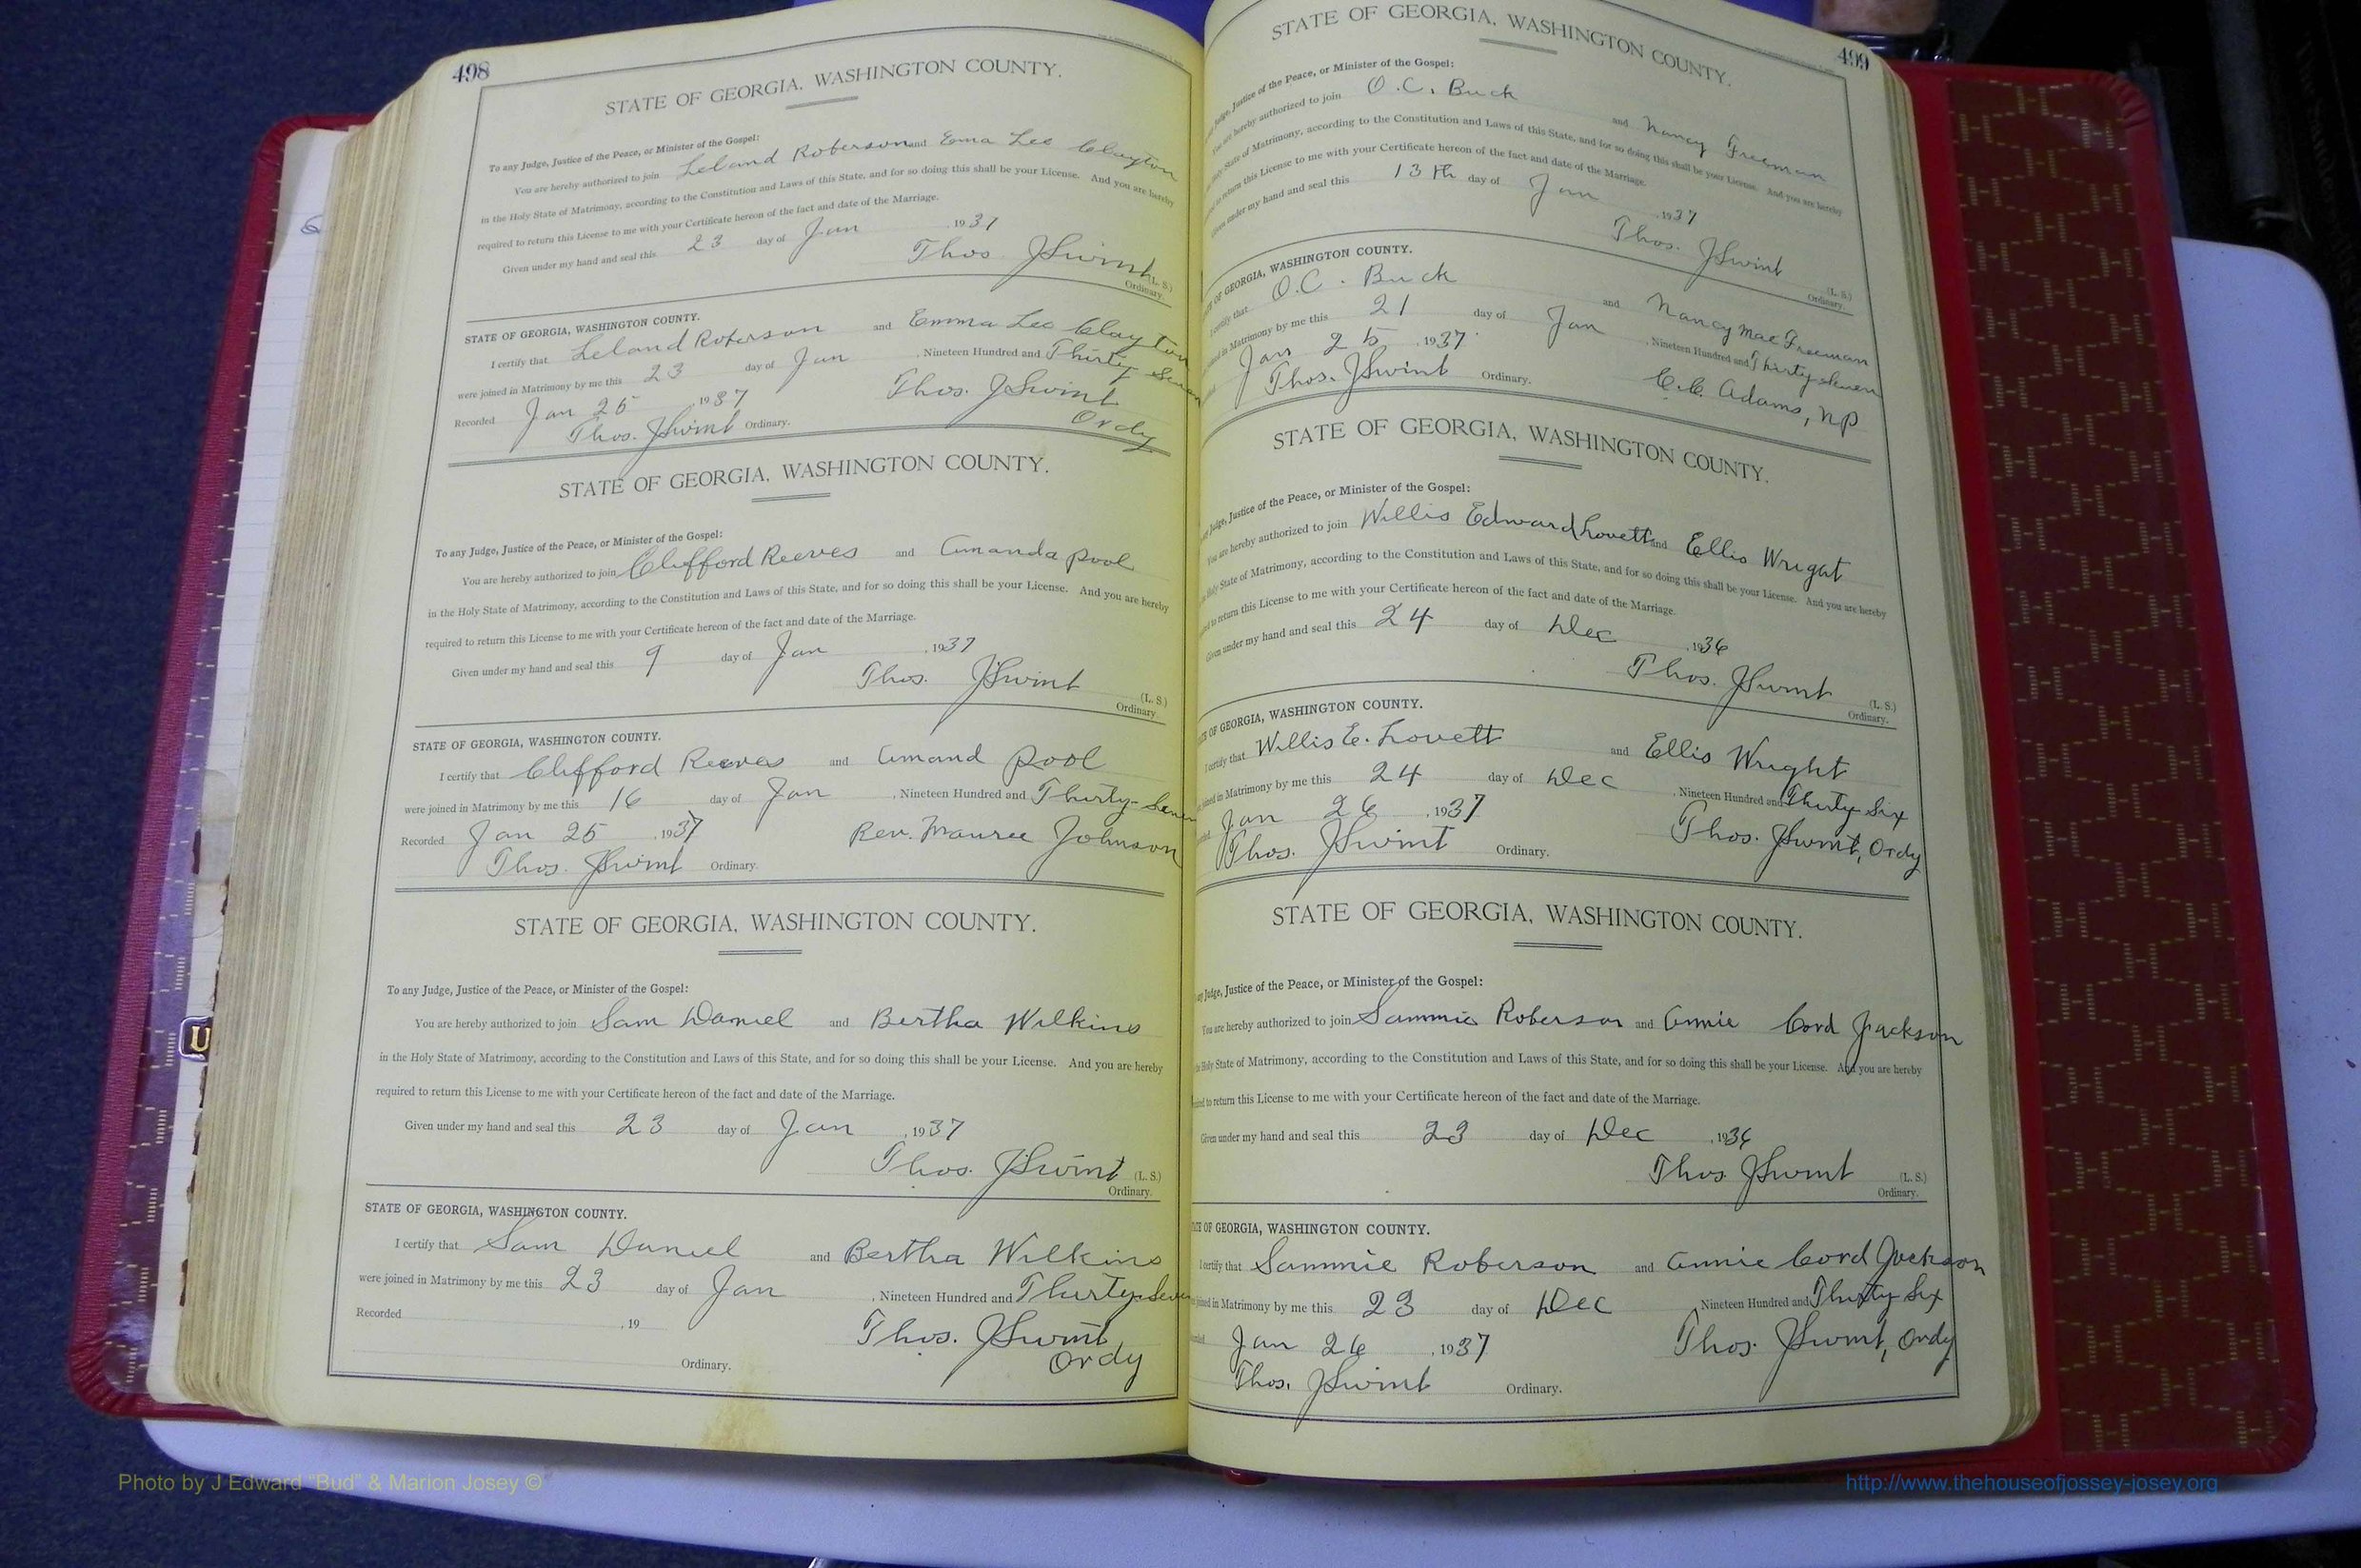 498
STATE OF GEORGIA, WASHINGTON COUNTY.
To any Judge, Justice of the Peace, or Minister of the Gospel:
You are hereby authorized to join Leland Roberson and Ema Lee Clayton
in the Holy State of Matrimony, according to the Constitution and Laws of this State, and for so doing this shall be your License. And you are hereby
required to return this License to me with your Certificate hereon of the fact and date of the Marriage.
Given under my hand and seal this 23 day of Jan , 1937
Thos J Swint (L. S.)
Ordinary.
STATE OF GEORGIA, WASHINGTON COUNTY.
I certify that Leland Roberson and Emma Lee Clayton
were joined in Matrimony by me this 23 day of Jan , Nineteen Hundred and Thirty Seven
Recorded Jan 25 , 1937 Thos. J Swint
Thos. J Swint Ordinary. Ordy
STATE OF GEORGIA, WASHINGTON COUNTY.
To any Judge, Justice of the Peace, or Minister of the Gospel:
You are hereby authorized to join Clifford Reeves and Amanda Pool
in the Holy State of Matrimony, according to the Constitution and Laws of this State, and for so doing this shall be your License. And you are hereby
required to return this License to me with your Certificate hereon of the fact and date of the Marriage.
Given under my hand and seal this 9 day of Jan , 1937
Thos. J Swint (L. S.)
Ordinary.
STATE OF GEORGIA, WASHINGTON COUNTY.
I certify that Clifford Reeves and Amand Pool
were joined in Matrimony by me this 16 day of Jan , Nineteen Hundred and Thirty-Seven
Recorded Jan 25 , 1937 Rev. Mauree Johnson
Thos. J Swint Ordinary.
STATE OF GEORGIA, WASHINGTON COUNTY.
To any Judge, Justice of the Peace, or Minister of the Gospel:
You are hereby authorized to join Sam Daniel and Bertha Wilkins
in the Holy State of Matrimony, according to the Constitution and Laws of this State, and for so doing this shall be your License. And you are hereby
required to return this License to me with your Certificate hereon of the fact and date of the Marriage.
Given under my hand and seal this 23 day of Jan , 1937
Thos. J Swint (L. S.)
Ordinary.
STATE OF GEORGIA, WASHINGTON COUNTY.
I certify that Sam Daniel and Bertha Wilkins
were joined in Matrimony by me this 23 day of Jan , Nineteen Hundred and Thirty-Seven
Recorded , 19 Thos. J Swint
Ordinary. Ordy
499
STATE OF GEORGIA, WASHINGTON COUNTY.
Judge, Justice of the Peace, or Minister of the Gospel:
are hereby authorized to join O.C. Buck and Nancy Freeman
Holy State of Matrimony, according to the Constitution and Laws of this State, and for so doing this shall be your License. And you are hereby
to return this License to me with your Certificate hereon of the fact and date of the Marriage.
Given under my hand and seal this 13th day of Jan , 1937
Thos. J Swint (L. S.)
Ordinary.
OF GEORGIA, WASHINGTON COUNTY.
I certify that O.C. Buck and Nancy Mae Freeman
joined in Matrimony by me this 21 day of Jan , Nineteen Hundred and Thirty Seven
Jan 25 , 1937 C.C. Adams, NP
Thos. J Swint Ordinary.
STATE OF GEORGIA, WASHINGTON COUNTY.
any Judge, Justice of the Peace, or Minister of the Gospel:
You are hereby authorized to join Willis Edward Lovett and Ellis Wrigat
Holy State of Matrimony, according to the Constitution and Laws of this State, and for so doing this shall be your License. And you are hereby
to return this License to me with your Certificate hereon of the fact and date of the Marriage.
Given under my hand and seal this 24 day of Dec , 1936
Thos. J Swint (L. S.)
Ordinary.
OF GEORGIA, WASHINGTON COUNTY.
I certify that Willis E. Lovett and Ellis Wright
joined in Matrimony by me this 24 day of Dec , Nineteen Hundred and Thirty-Six
Jan 26 , 1937 Thos. J Swint, Ordy
Thos. J Swint Ordinary.
STATE OF GEORGIA, WASHINGTON COUNTY.
any Judge, Justice of the Peace, or Minister of the Gospel:
You are hereby authorized to join Sammie Roberson and Annie Cord Jackson
Holy State of Matrimony, according to the Constitution and Laws of this State, and for so doing this shall be your License. And you are hereby
to return this License to me with your Certificate hereon of the fact and date of the Marriage.
Given under my hand and seal this 23 day of Dec , 1936
Thos J Swint (L. S.)
Ordinary.
OF GEORGIA, WASHINGTON COUNTY.
I certify that Sammie Roberson and Annie Cord Jackson
joined in Matrimony by me this 23 day of Dec Nineteen Hundred and Thirty-Six
Jan 26 , 1937 Thos. J Swint, Ordy
Thos. J Swint Ordinary.
Photo by J Edward "Bud" & Marion Josey ©
http://www.thehouseofjossey-josey.org